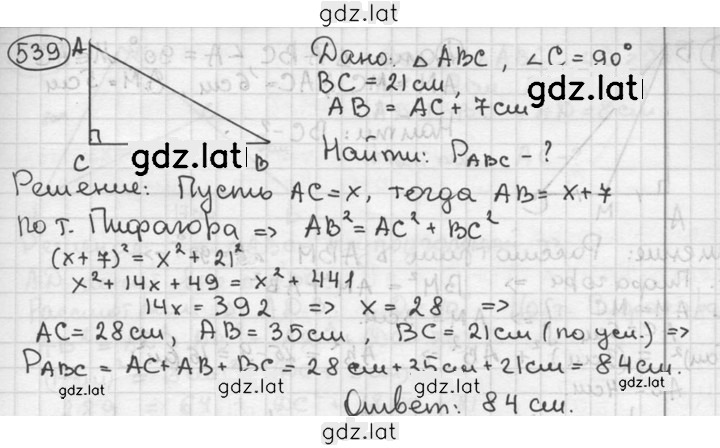 gdz.lat
539 A Дано: △ ABC, ∠C = 90°
BC = 21 см,
gdz.lat
AB = AC + 7 см
C gdz.lat B Найти: P_ABC - ?
Решение: Пусть AC = x, тогда AB = x + 7
по т. Пифагора => AB² = AC² + BC²
(x + 7)² = x² + 21²
gdz.lat
x² + 14x + 49 = x² + 441
14x = 392 => x = 28 =>
AC = 28 см, AB = 35 см, BC = 21 см (по усл.) =>
P_ABC = AC + AB + BC = 28 см + 25 см + 21 см = 84 см.
gdz.lat gdz.lat gdz.lat
Ответ: 84 см.
gdz.lat